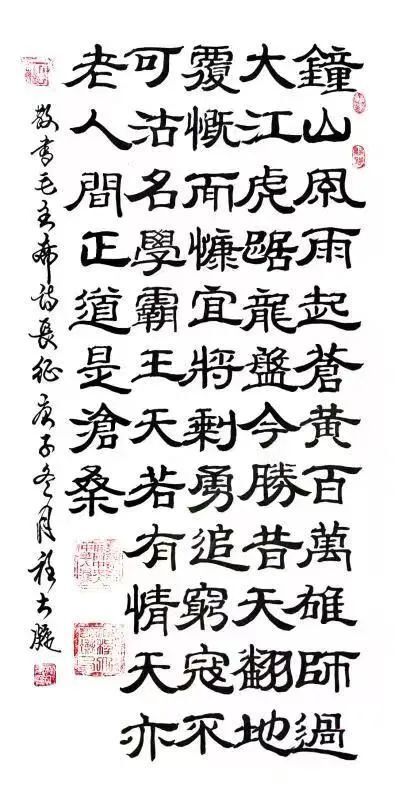 鐘山風雨起蒼黃百萬雄師過
大江虎踞龍盤今勝昔天翻地
覆慨而慷宜將剩勇追窮寇不
可沽名學霸王天若有情天亦
老人間正道是滄桑
敬書毛主席詩長征庚子冬月